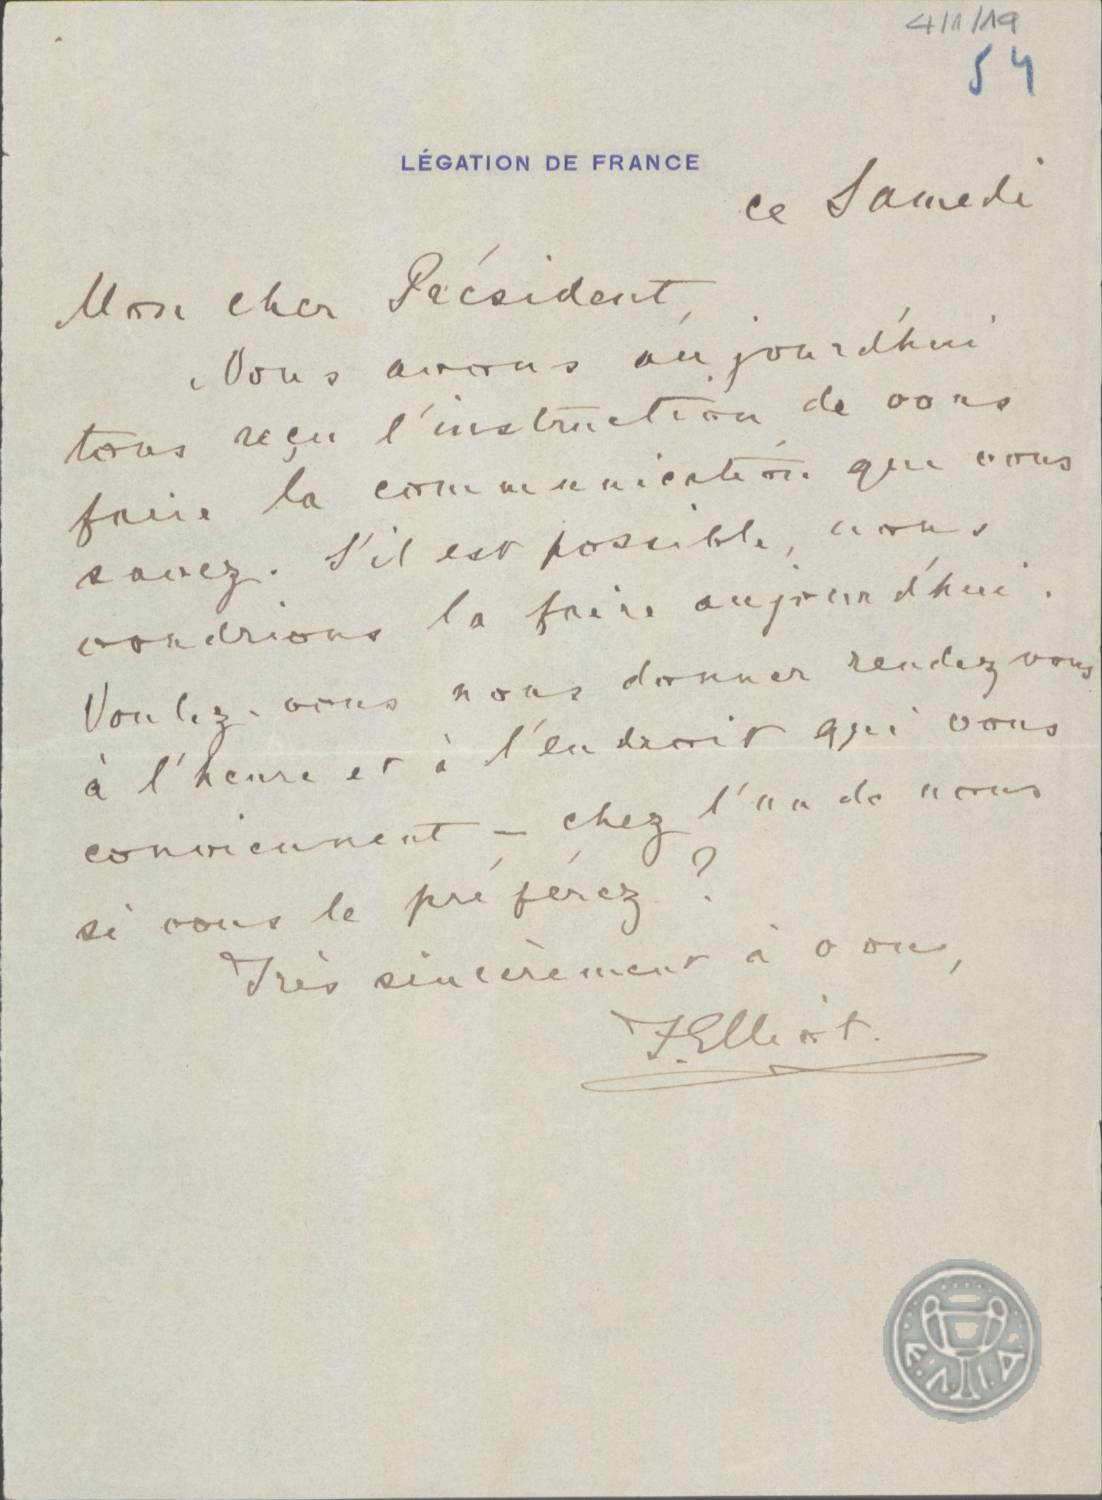 4/1/19
54
LÉGATION DE FRANCE
ce Samedi
Mon cher Président,
Nous avons aujourd'hui
tous reçu l'instruction de vous
faire la communication que vous
savez. S'il est possible, nous
voudrions la faire aujourd'hui.
Voulez-vous nous donner rendez vous
à l'heure et à l'endroit qui vous
conviennent – chez l'un de nous
si vous le préférez?
Très sincèrement à vous,
F. Elliot.
Ε.Λ.Ι.Α